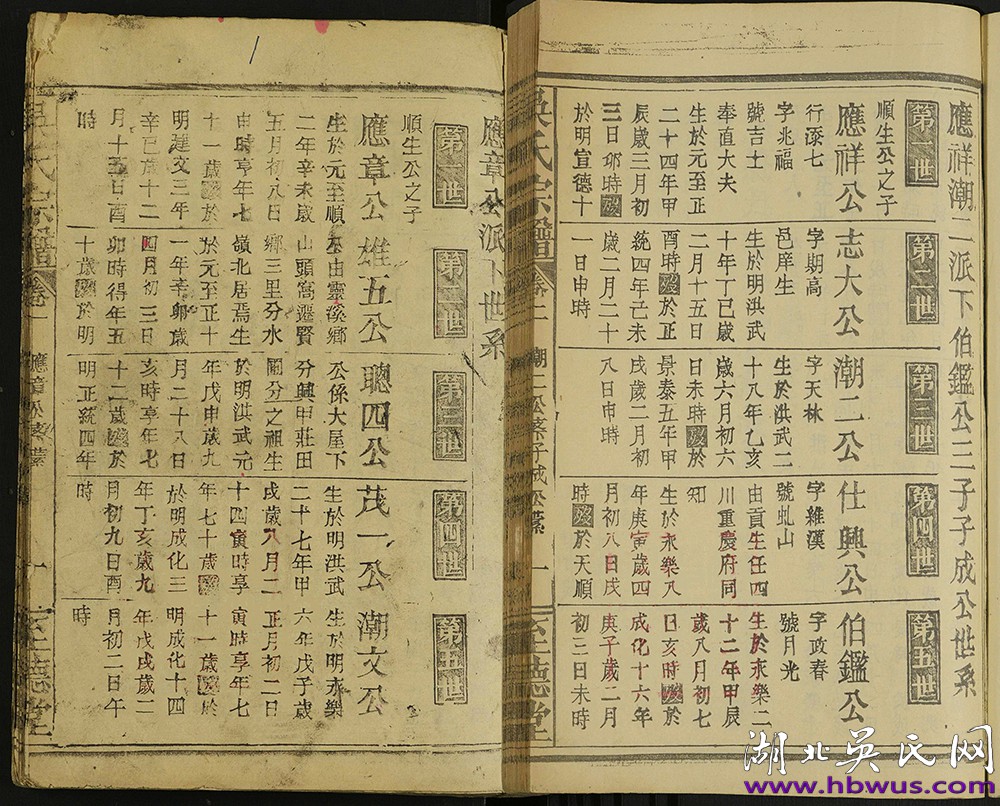 應祥潮二派下伯鑑公三子子成公世系
第一世
應祥公
順生公之子
行添七
字兆福
號吉士
奉直大夫
生於元至正
二十四年甲
辰歲三月初
三日卯時歿
於明宣德十
第二世
志大公
字期高
邑庠生
生於明洪武
十年丁巳歲
二月十五日
酉時歿於正
統四年己未
歲二月二十
一日申時
第三世
潮二公
字天林
生於洪武二
十八年乙亥
歲六月初六
日未時歿於
景泰五年甲
戌歲二月初
八日申時
第四世
仕興公
字維漢
號虬山
由貢生任四
川重慶府同
知
生於永樂八
年庚寅歲四
月初八日戌
時歿於天順
第五世
伯鑑公
字政春
號月光
生於永樂二
十二年甲辰
歲八月初七
日亥時歿於
成化十六年
庚子歲二月
初三日未時
吳氏宗譜
卷二
潮二公系子成公系
一
至德堂
應章公派下世系
第一世
應章公
順生公之子
生於元至順
二年辛未歲
五月初八日
申時享年七
十一歲歿於
明建文三年
辛巳歲十二
月十五日酉
時
第二世
雄五公
公由靈溪鄉
山頭窩遷賢
鄉三里分水
嶺北居焉生
於元至正十
一年辛卯歲
四月初三日
卯時得年五
十歲歿於明
第三世
聰四公
公係大屋下
分興甲莊田
關分之祖生
於明洪武元
年戊申歲九
月二十八日
亥時享年七
十二歲歿於
明正統四年
第四世
茂一公
生於明洪武
二十七年甲
戌歲八月二
十四寅時享
年七十歲歿
於明成化三
年丁亥歲九
月初九日酉
時
第五世
潮文公
生於明永樂
六年戊子歲
正月初二日
寅時享年七
十一歲歿於
明成化十四
年戊戌歲二
月初二日午
時
吳氏宗譜
卷一
應章公系
一
至德堂
湖北吳氏网
www.hbwus.com